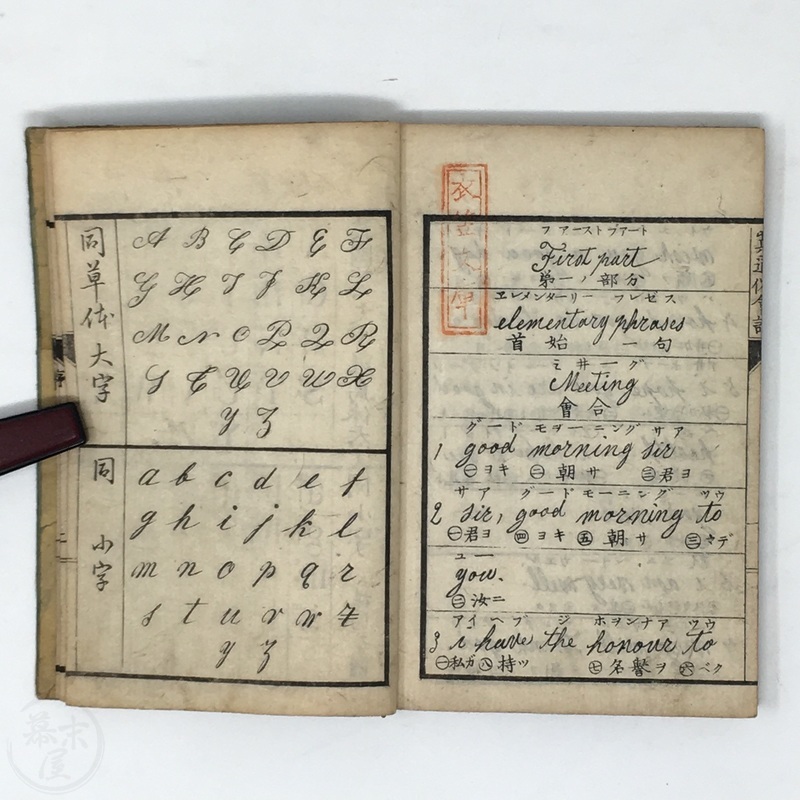 同草体大字
A B C D E F
G H I J K L
M N O P Q R
S T U V W X
Y Z
同 小字
a b c d e f
g h i j k l
m n o p q r
s t u v w x
y z
序
ファーストプァート
First part
第一ノ部分
エレメンターリー フレゼス
elementary phrases
首始 一句
ミ井ーグ
Meeting
會合
グード モヲーニング サア
1 good morning sir
㊀ヨキ ㊁朝サ ㊂君ヨ
サア グードモーニング ツウ
2 sir, good morning to
㊀君ヨ ㊃ヨキ ㊄朝サ ㊂マデ
ユー
you.
㊁汝ニ
アイ ヘブ ジ ホヲンナア ツウ
3 i have the honour to
㊀私ガ ㊇持ツ ㊆名譽ヲ ㊅ベク
幕末屋